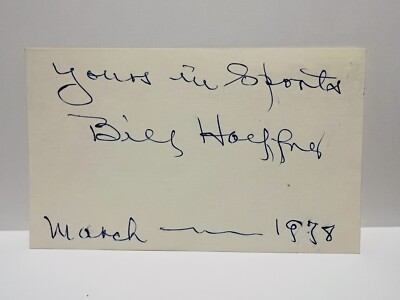 Yours in Sports
Bill Hoeffner
March — 1978